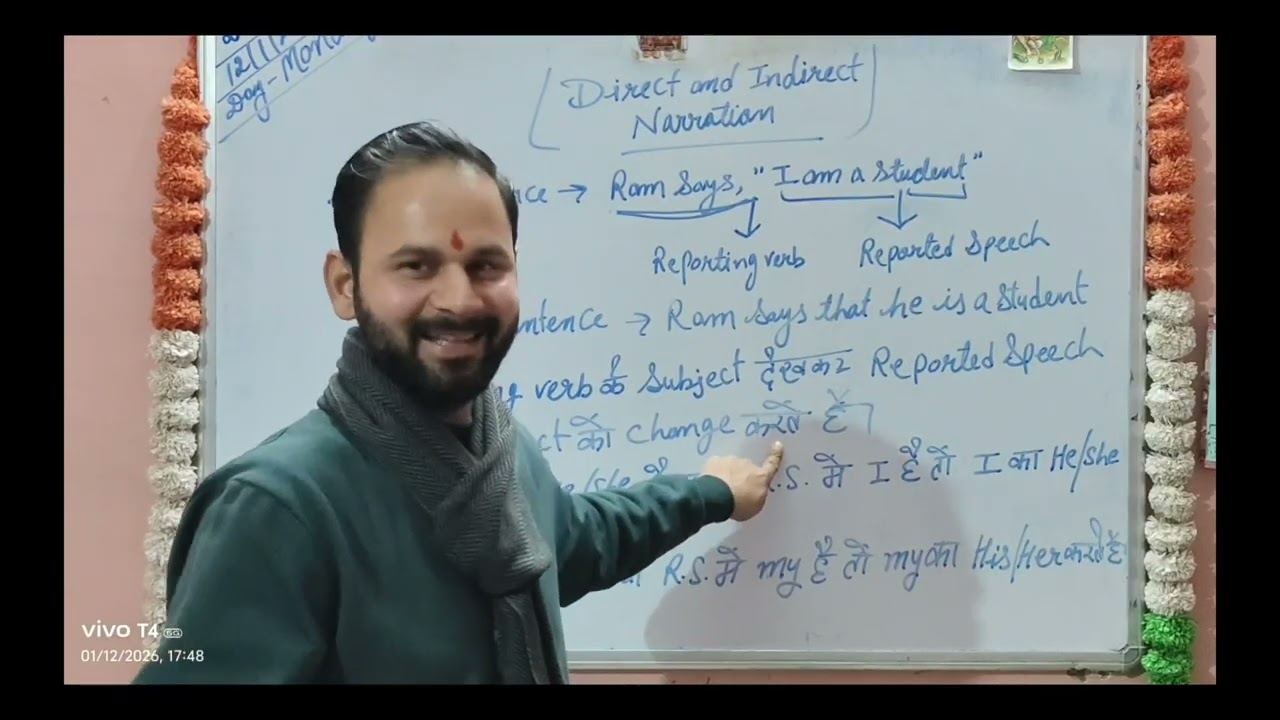 12/1/
Day - Mon
Direct and Indirect
Narration
nce → Ram says, "I am a student"
Reporting verb Reported Speech
entence → Ram says that he is a student
ng verb के Subject देखकर Reported Speech
ct को change करते हैं।
e/she है R.S. में I है तो I का He/she
R.S. में my है तो my का His/Her करते हैं
vivo T4 5G
01/12/2026, 17:48